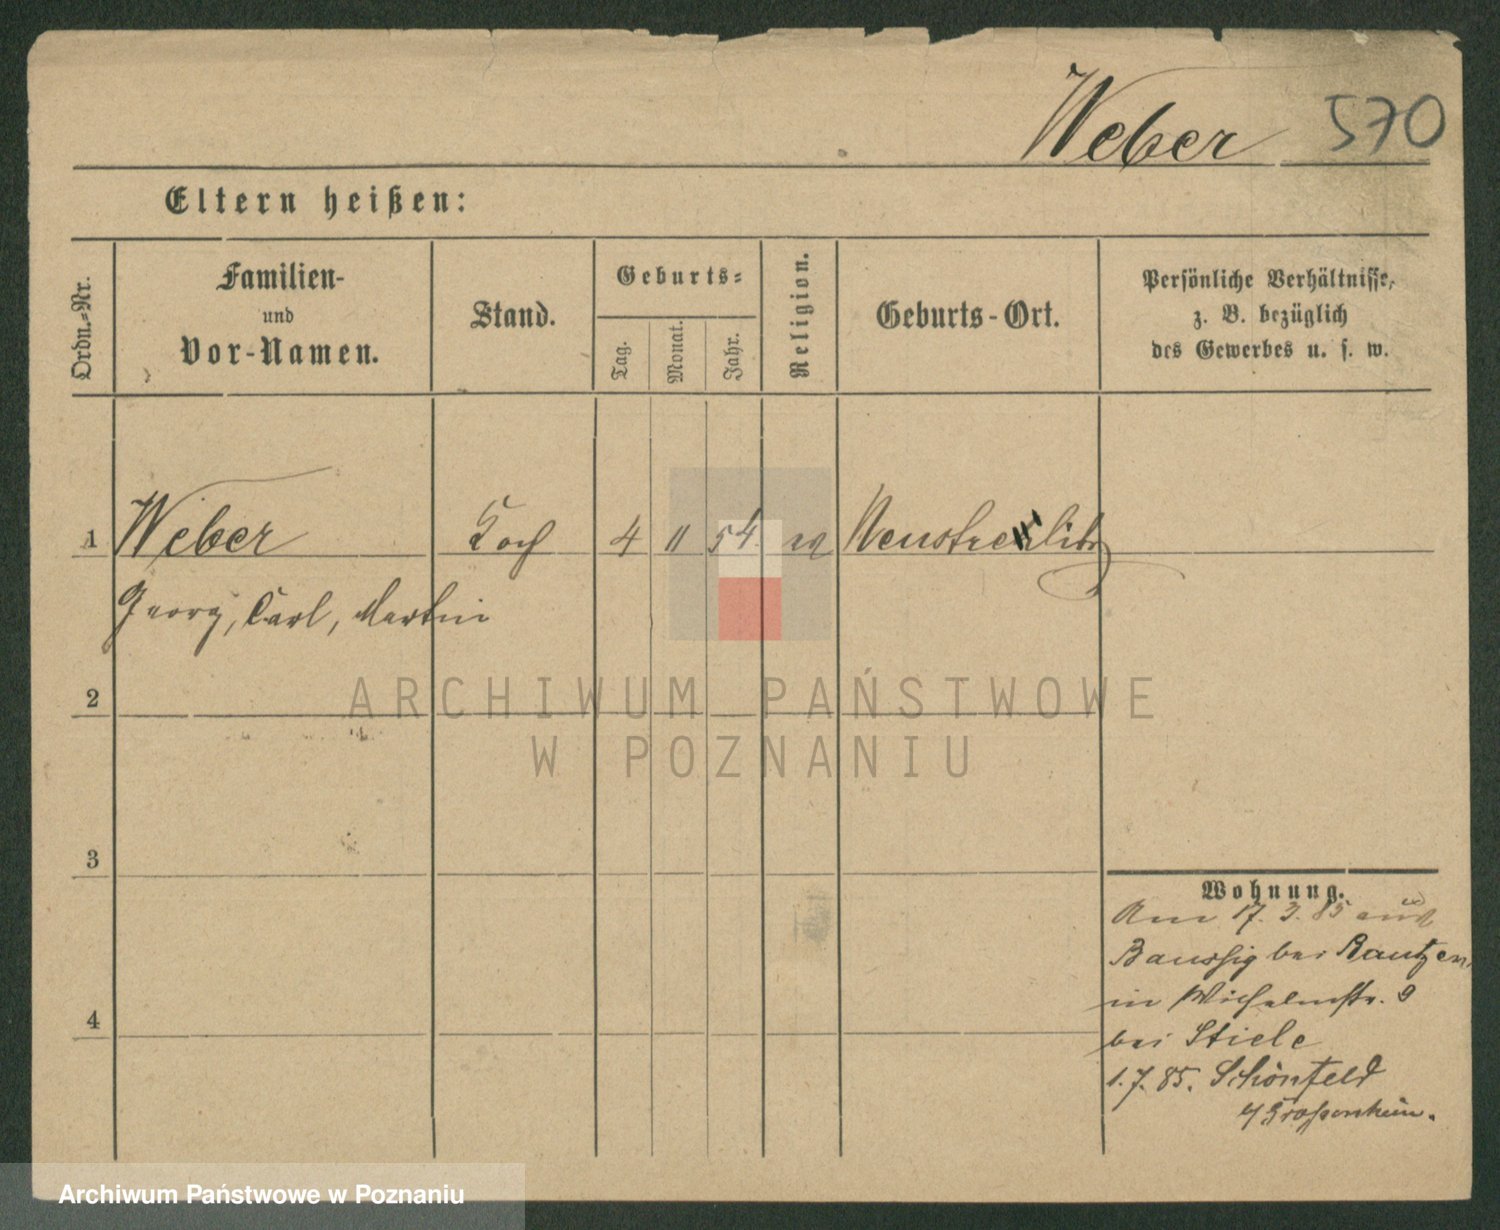 Weber 570
Eltern heißen:
Ordn.-Nr.
Familien-
und
Vor-Namen.
Stand.
Geburts-
Tag.
Monat.
Jahr.
Religion.
Geburts-Ort.
Persönliche Verhältnisse,
z. B. bezüglich
des Gewerbes u. s. w.
1 Weber Koch 4 11 54 Neustrelitz
Georg, Carl, Martin
2
ARCHIWUM PAŃSTWOWE
W POZNANIU
3
4
Wohnung.
Am 17. 3. 85 aus
bei Bautzen,
in Wilhelmstr. 9
bei Stiele
1.7.85. Schönfeld
Großenhain.
Archiwum Państwowe w Poznaniu